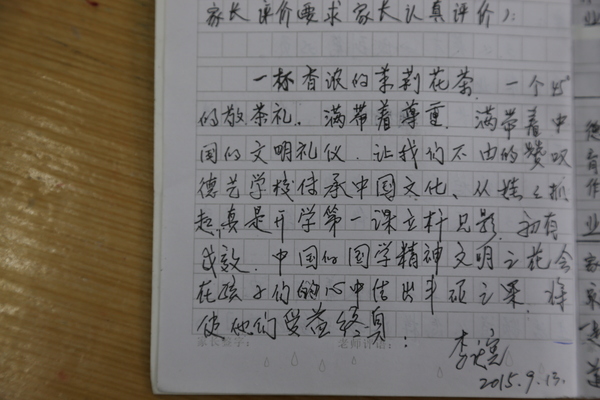 家长评价要求家长认真评价):
一杯香浓的茉莉花茶。一个45°
的敬茶礼。满带着尊重。满带着中
国的文明礼仪。让我们不由的赞叹
德艺学校传承中国文化、从娃娃抓
起,真是开学第一课立杆见影,初有
成效。中国的国学精神文明之花会
在孩子们的心中结出丰硕之果,将
使他们受益终身!
家长签字: 老师评语:
李
2015.9.13.
业
德
育
作
业
家